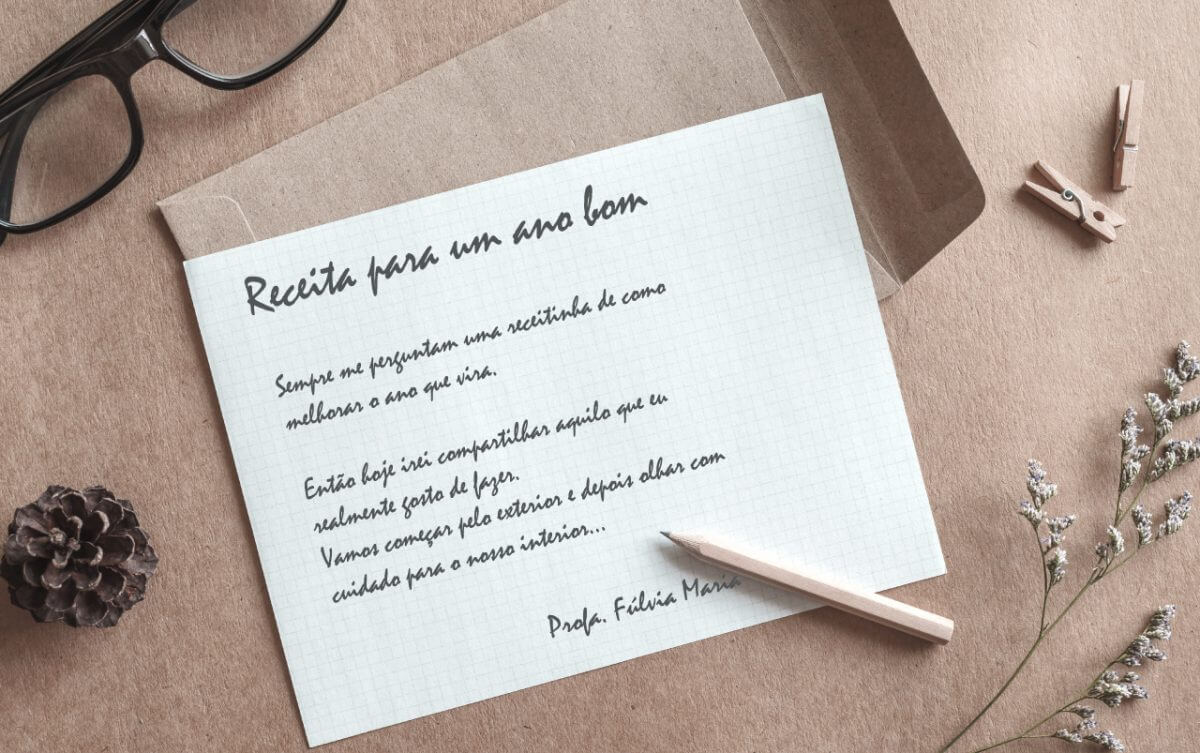 Receita para um ano bom
Sempre me perguntam uma receitinha de como
melhorar o ano que vira.
Então hoje irei compartilhar aquilo que eu
realmente gosto de fazer.
Vamos começar pelo exterior e depois olhar com
cuidado para o nosso interior...
Profa. Fúlvia Maria